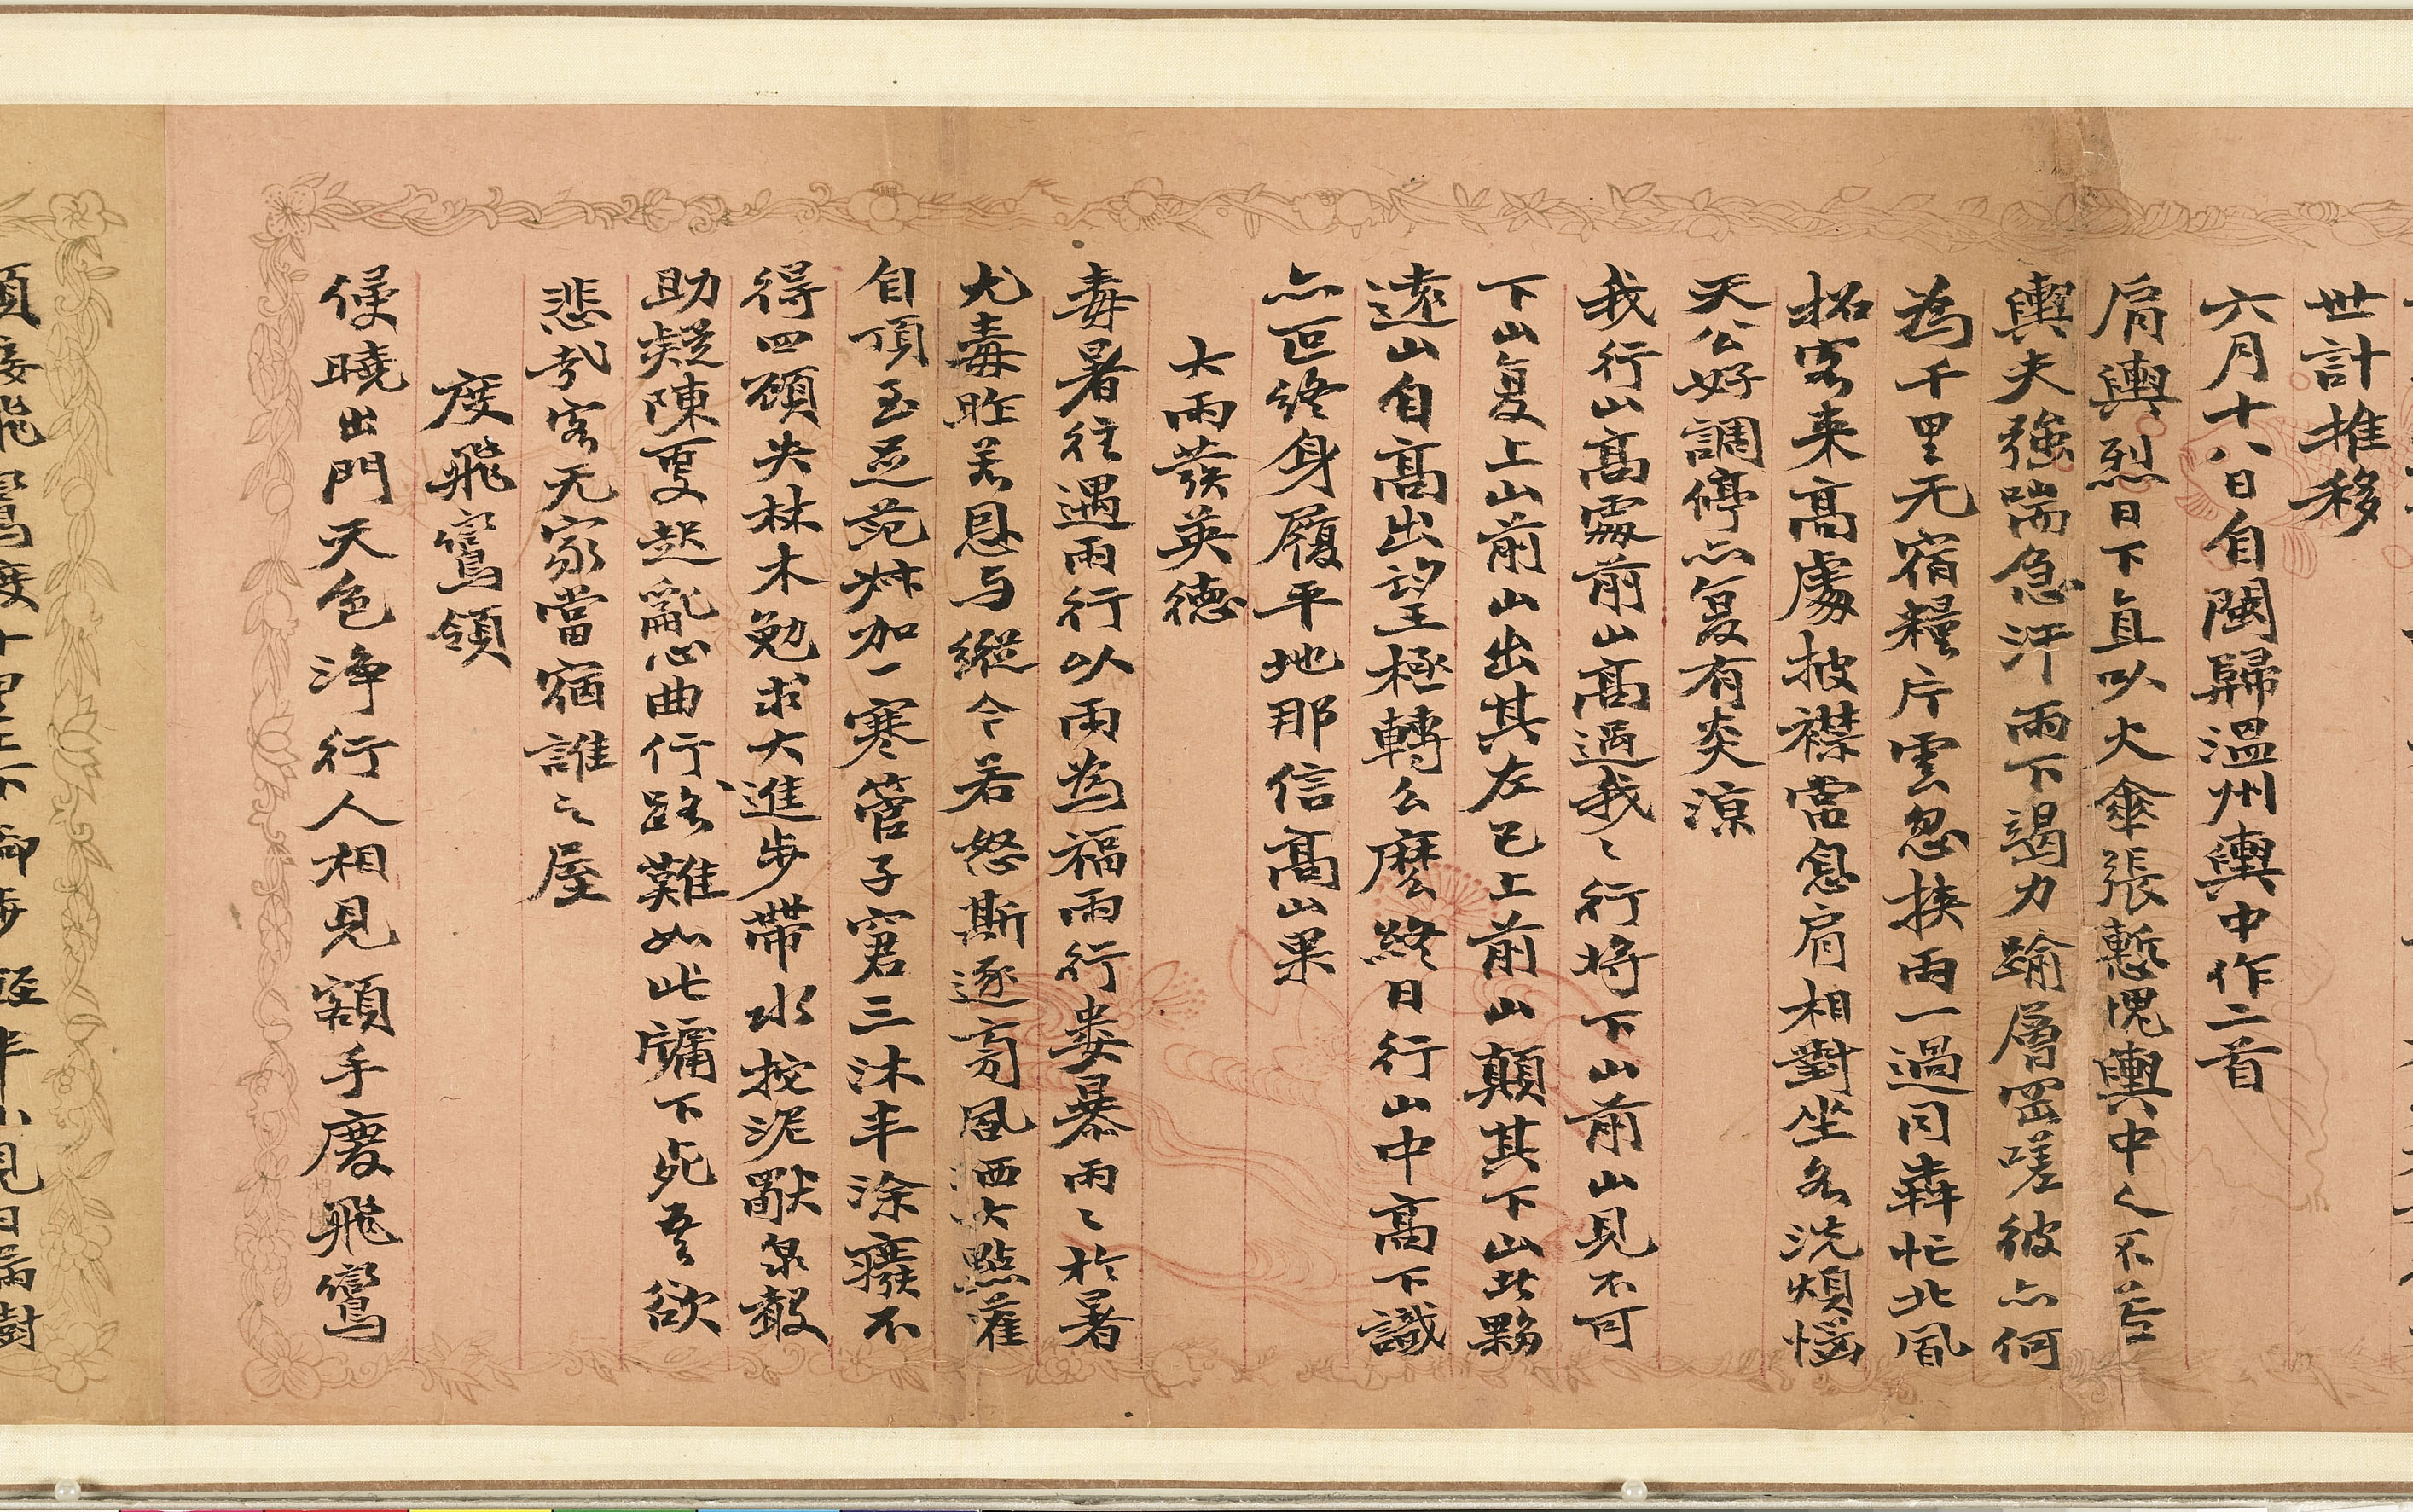 世計推移
六月十八日自閩歸溫州輿中作二首
肩輿烈日下直以火傘張慙愧輿中人不苦
輿夫強喘急汗雨下竭力踰層岡嗟彼亦何
為千里无宿糧片雲忽挾雨一過同犇忙北風
招客来高處披襟當息肩相對坐各洗煩惱
天公好調停亦复有炎涼
我行山高處前山高過我〻行将下山前山見不可
下山复上山前山出其左已上前山顛其下山此夥
遠山自高出望王極轉么麼終日行山中高下識
亦叵終身履平地那信高山果
大雨發英德
毒暑往遇雨行以雨為福雨行婁暴雨〻於暑
尤毒昨羔恩与縱今若怒斯逐旁風洒汏點灌
自頂至足范妽加一寒管子窘三沐丰涂癈不
得四顧失林木勉求大進步帶水挖泥厭泉縠
助凝陳夏起亂心曲行路難如此牗下死吾欲
悲哉客无家當宿誰之屋
度飛鸞領
侵曉出門天色淨行人相見額手慶飛鸞